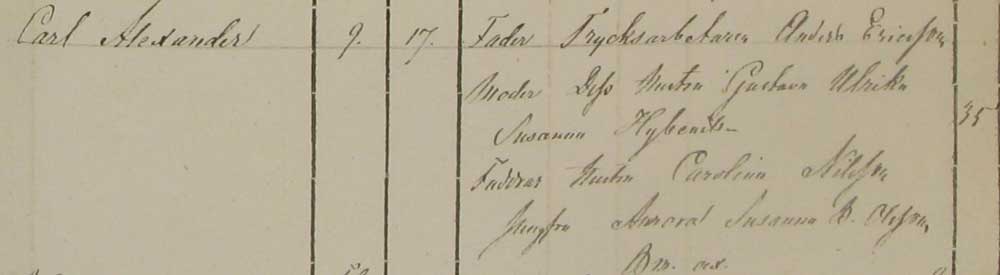 Carl Alexander 9. 17. Fader Trycksarbetaren Anders Ericsson
Moder Dess Hustru Gustava Ulrika 35
Susanna
Faddrar Hustru Carolina Nilsson
Jungfru Aurora Susanna B. Olsson